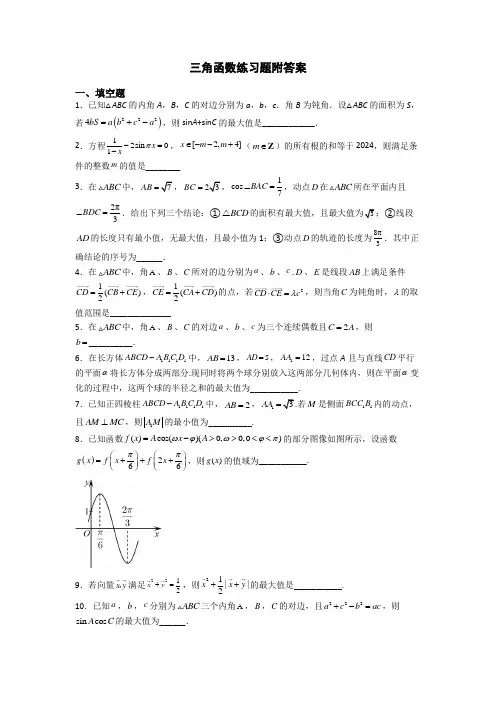 三角函数练习题附答案
一、填空题
1．已知△ABC的内角A，B，C的对边分别为a，b，c．角B为钝角．设△ABC的面积为S，
若4bS = a(b² + c² − a²)，则sinA+sinC的最大值是____________．
2．方程1/(1−x) − 2sinπx = 0，x∈[−m−2, m+4]（m∈Z）的所有根的和等于2024，则满足条
件的整数m的值是________
3．在△ABC中，AB = √7，BC = 2√3，cos∠BAC = 1/7，动点D在△ABC所在平面内且
∠BDC = 2π/3．给出下列三个结论：①△BCD的面积有最大值，且最大值为√3；②线段
AD的长度只有最小值，无最大值，且最小值为1；③动点D的轨迹的长度为8π/3．其中正
确结论的序号为______．
4．在△ABC中，角A、B、C所对的边分别为a、b、c．D、E是线段AB上满足条件
CD = 1/2(CB + CE)，CE = 1/2(CA + CD)的点，若CD·CE = λc²，则当角C为钝角时，λ的取
值范围是______________
5．在△ABC中，角A、B、C的对边a、b、c为三个连续偶数且C = 2A，则
b = __________．
6．在长方体ABCD − A₁B₁C₁D₁中，AB = 13，AD = 5，AA₁ = 12，过点A且与直线CD平行
的平面α将长方体分成两部分.现同时将两个球分别放入这两部分几何体内，则在平面α变
化的过程中，这两个球的半径之和的最大值为___________.
7．已知正四棱柱ABCD − A₁B₁C₁D₁中，AB = 2，AA₁ = √3.若M是侧面BCC₁B₁内的动点，
且AM ⊥ MC，则A₁M的最小值为__________.
8．已知函数f(x) = A cos(ωx − φ)(A > 0, ω > 0, 0 < φ < π)的部分图像如图所示，设函数
g(x) = f(x + π/6) + f(2x + π/6)，则g(x)的值域为___________．
y
1
O
π/6
2π/3
x
9．若向量x,y满足x² + y² = 1/2，则x² + 1/2|x + y|的最大值是___________.
10．已知a，b，c分别为△ABC三个内角A，B，C的对边，且a² + c² − b² = ac，则
sin A cos C的最大值为______．